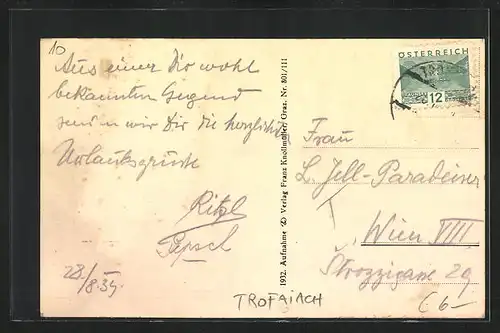 10
Aus einer Dir wohl
bekannten Gegend
senden wir Dir die herzlichsten
Urlaubsgrüsse
Ritzl
Pepsch
28/8.34.
1932. Aufnahme Verlag Franz Knollmüller, Graz. Nr. 801/111
ÖSTERREICH
12
Frau
L. Jell-Paradeiser
Wien VIII
Strozzigasse 29
TROFAIACH
€6-